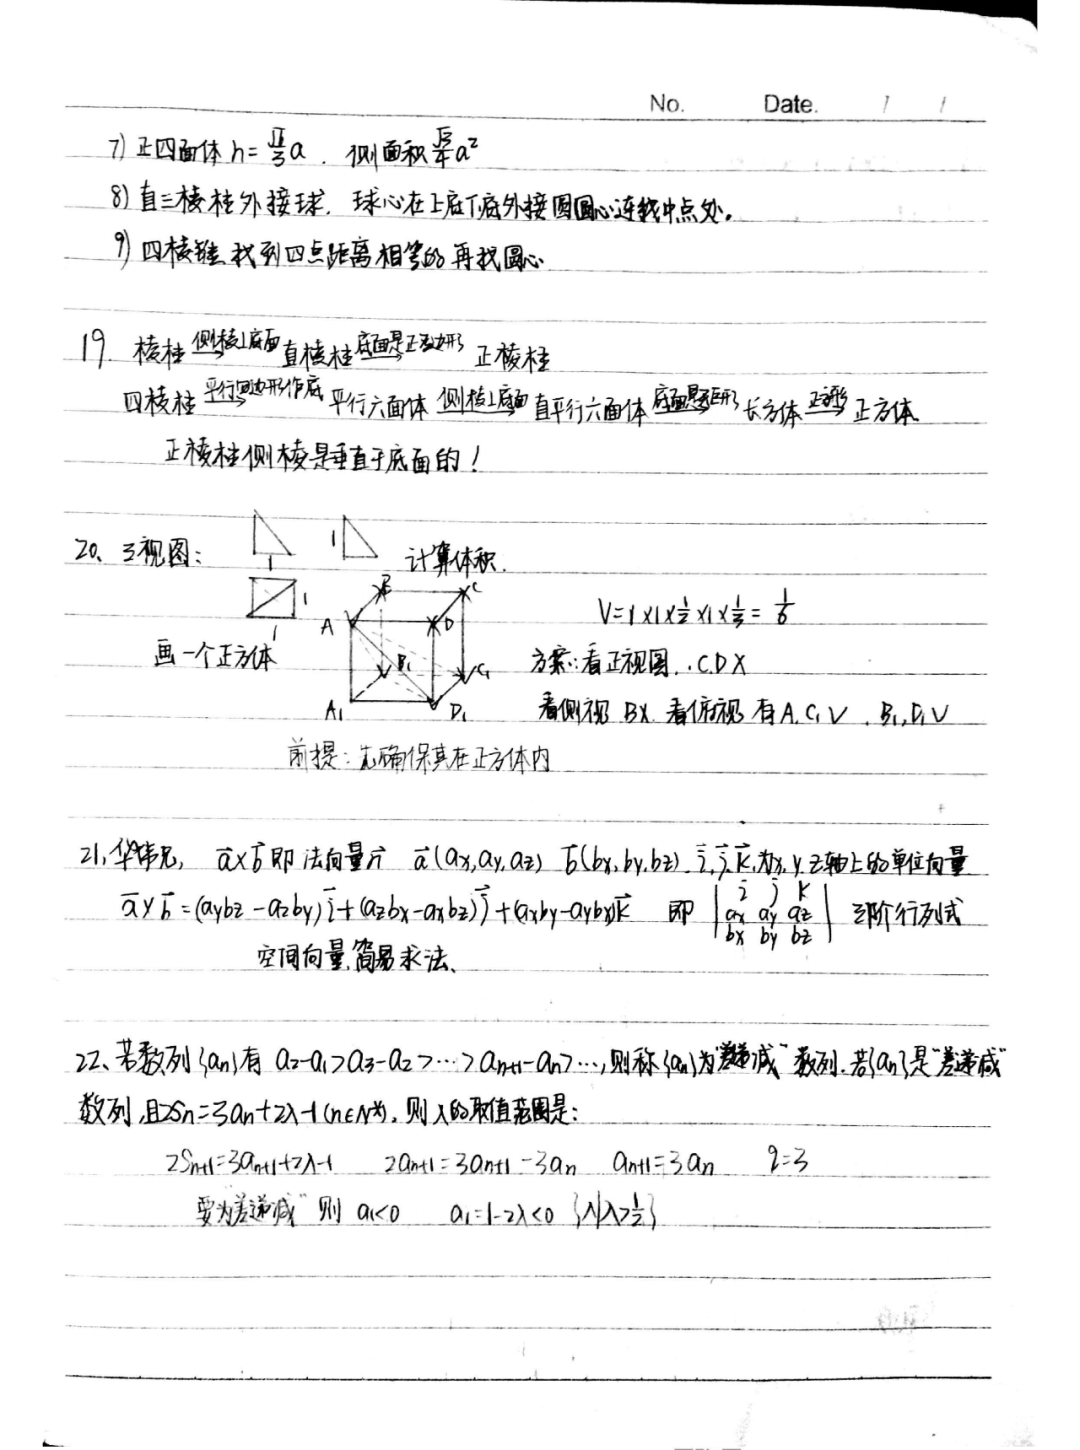 No. Date. / /
7) 正四面体 h=√6/3 a . 侧面积 √3/4 a²
8) 直三棱柱外接球. 球心在上底下底外接圆圆心连线中点处。
9) 四棱锥 找到四点距离相等的 再找圆心
19. 棱柱 侧棱⊥底面→ 直棱柱 底面是正多边形→ 正棱柱
四棱柱 平行四边形作底→ 平行六面体 侧棱⊥底面→ 直平行六面体 底面是矩形→ 长方体 正方形→ 正方体
正棱柱侧棱是垂直于底面的！
20、三视图: 1 1 计算体积.
1 1
B C
A D
V=1×1×½×1×⅓=1/6
画一个正方体 B₁ C₁ 方案:看正视图. .C.D X
A₁ D₁ 看侧视 BX. 看俯视 有A.C₁ V . B₁,D₁ V
前提: 先确保其在正方体内
21, a⃗×b⃗ 即 法向量n⃗ a⃗(ax,ay,az) b⃗(bx,by,bz) i⃗,j⃗,k⃗,为x,y,z轴上的单位向量
a⃗×b⃗=(aybz-azby)i⃗+(azbx-axbz)j⃗+(axby-aybx)k⃗ 即 | i⃗ j⃗ k⃗ | 三阶行列式
ax ay az
bx by bz
空间向量简易求法、
22、若数列{an}有 a₂-a₁>a₃-a₂>…>an+1-an>…,则称{an}为“差递减”数列.若{an}是“差递减”
数列,且2Sn=3an+2λ-1(n∈N*).则λ的取值范围是:
2Sn+1=3an+1+2λ-1 2an+1=3an+1-3an an+1=3an q=3
要为“差递减” 则 a₁<0 a₁=1-2λ<0 {λ|λ>½}